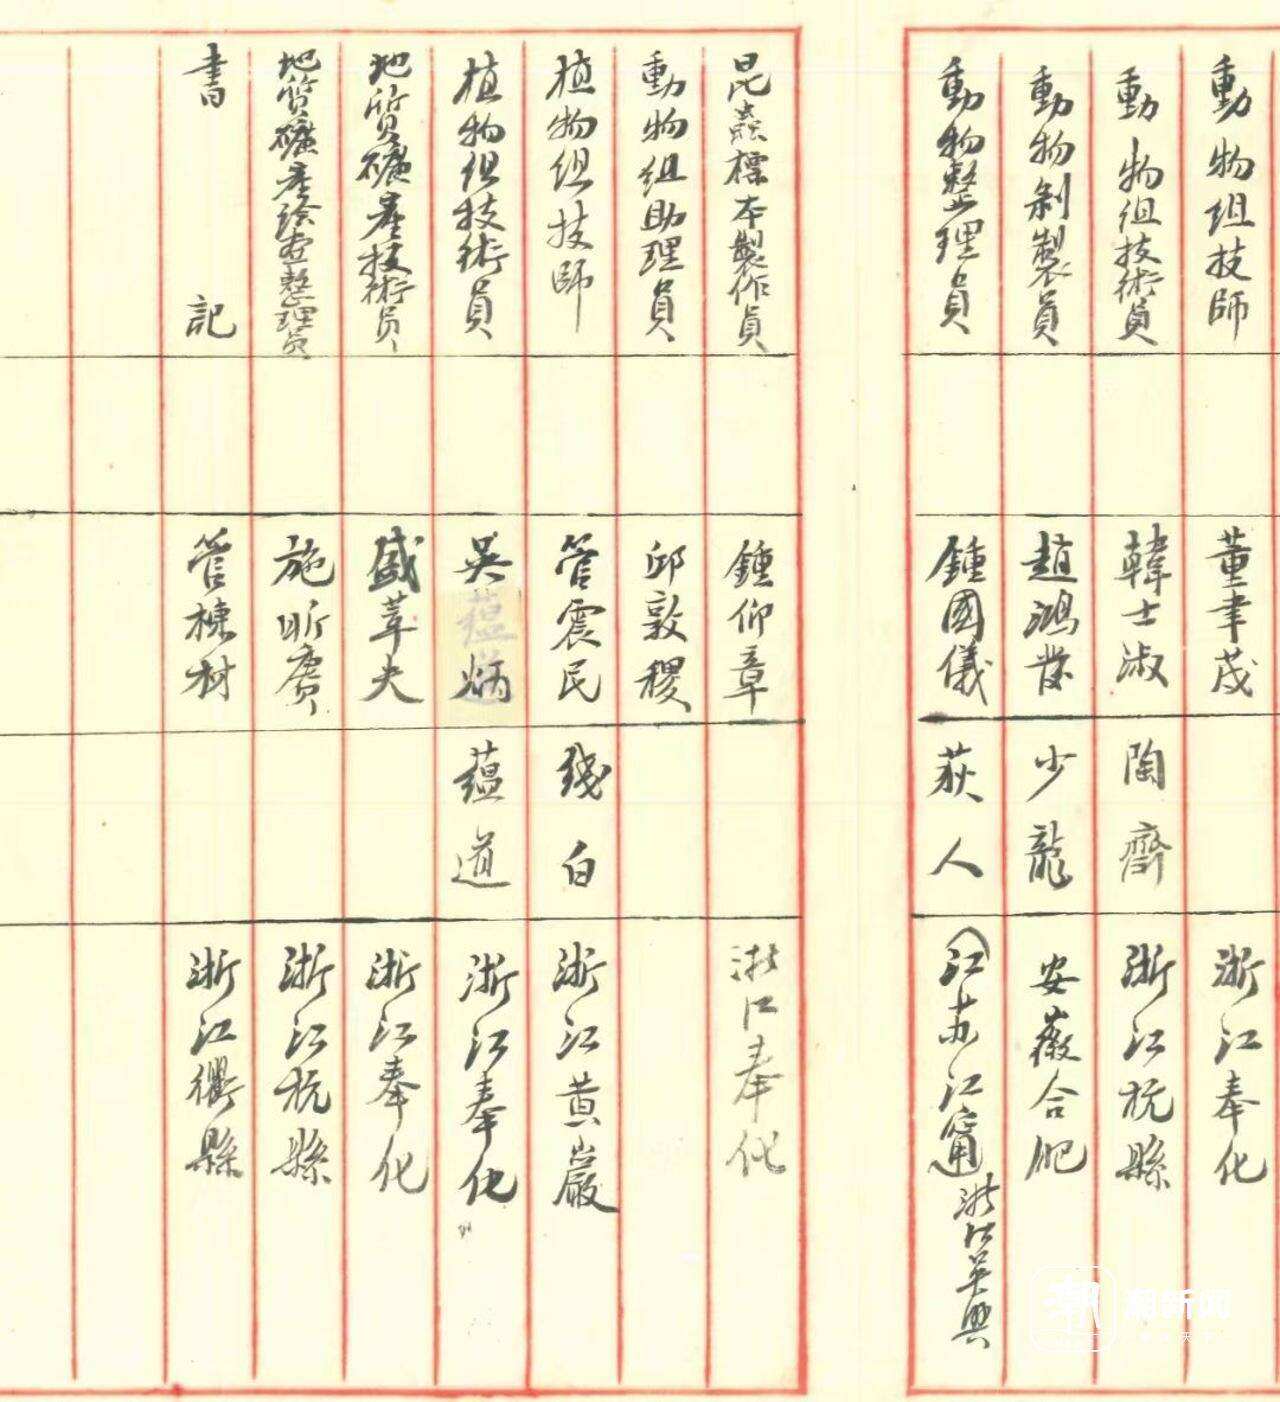 動物組技師 董聿茂 浙江奉化
動物組技術員 韓士淑 陶齋 浙江杭縣
動物剝製員 趙鴻 少龍 安徽合肥
動物整理員 鍾國儀 荻人 江苏江甯 浙江吴興
昆蟲標本製作員 鍾仰章 浙江奉化
動物組助理員 邱敦稷
植物組技師 管震民 錢白 浙江黄巖
植物組技術員 吴蕴炳 蕴道 浙江奉化
地質礦產技術员 盛莘夫 浙江奉化
地質礦產绘画整理员 施昕赓 浙江杭縣
書記 管棟材 浙江衢縣
潮新闻